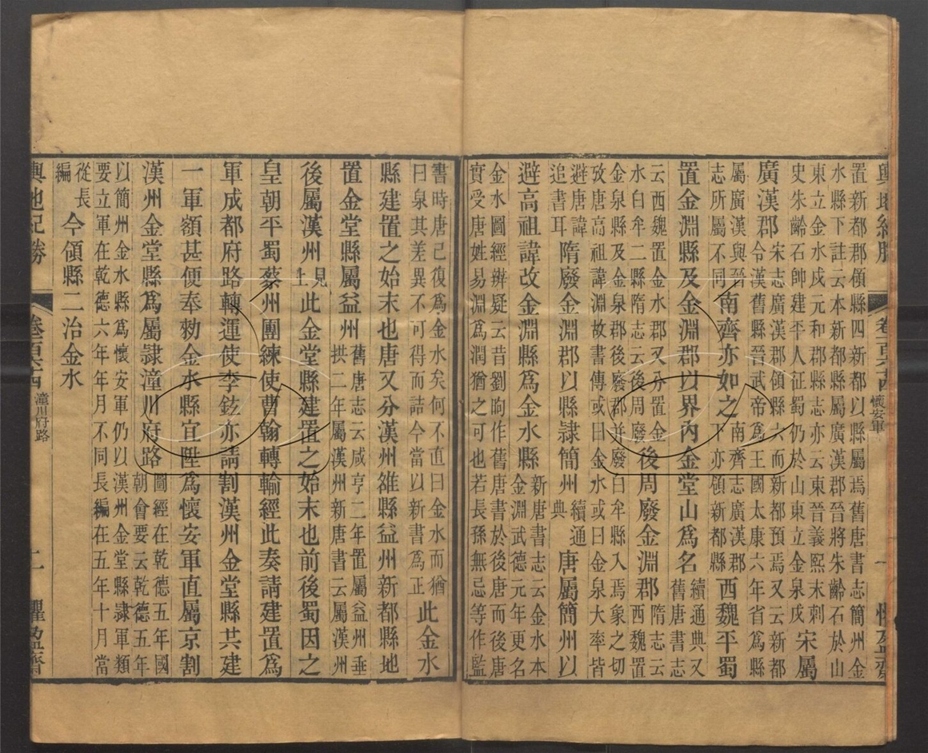 輿地紀勝 卷一百六十四 懷安軍 一 懼盈齋
置新都郡領縣四新都郡以縣屬焉舊唐書志簡州金
水縣下註云本新都縣屬廣漢郡晉將朱齡石於山
東立金水戍元和郡縣志亦云東晉義熙末刺
史朱齡石帥建平人征蜀仍於山東立金泉戍
宋屬
廣漢郡
宋志廣漢郡領縣六而新都預焉又云新都
令漢舊縣晉武帝為王國太康六年省為縣
屬廣漢與晉
志所屬不同
南齊亦如之
南齊志廣漢郡
下亦領新都縣
西魏平蜀
置金淵縣及金淵郡以界內金堂山為名
續通典又
舊唐書志
云西魏置金水郡又亦置金
水白牟二縣隋志云後周廢
後周廢金淵郡
隋志云
西魏置
金泉縣及金泉郡後周廢郡併廢白牟縣入焉象之切
攷唐高祖諱淵故書傳或曰金水或曰金泉大率皆
避唐諱
追書耳
隋廢金淵郡以縣隸簡州
續通
典
唐屬簡州以
避高祖諱改金淵縣為金水縣
新唐書志云金水本
金淵武德元年更名
金水圖經辨疑云昔劉昫作舊唐書於後唐而後唐
實受唐姓易淵為潤猶之可也若長孫無忌等作監
書時唐已復為金水矣何不直曰金水而猶
曰泉其差異不可得而詰今當以新書為正
此金水
縣建置之始末也唐又分漢州雒縣益州新都縣地
置金堂縣屬益州
舊唐志云咸亨二年置屬益州垂
拱二年屬漢州新唐書云屬漢州
後屬漢州
見
上
此金堂縣建置之始末也前後蜀因之
皇朝平蜀蔡州團練使曹翰轉輸經此奏請建置為
軍成都府路轉運使李鉉亦請割漢州金堂縣共建
一軍額甚便奉勑金水縣宜陞為懷安軍直屬京割
漢州金堂縣為屬隸潼川府路
圖經在乾德五年國
朝會要云乾德五年
以簡州金水縣為懷安軍仍以漢州金堂縣隸軍類
要立軍在乾德六年年月不同長編在五年十月當
從長
編
今領縣二治金水
輿地紀勝 卷一百六十四 潼川府路 二 懼盈齋